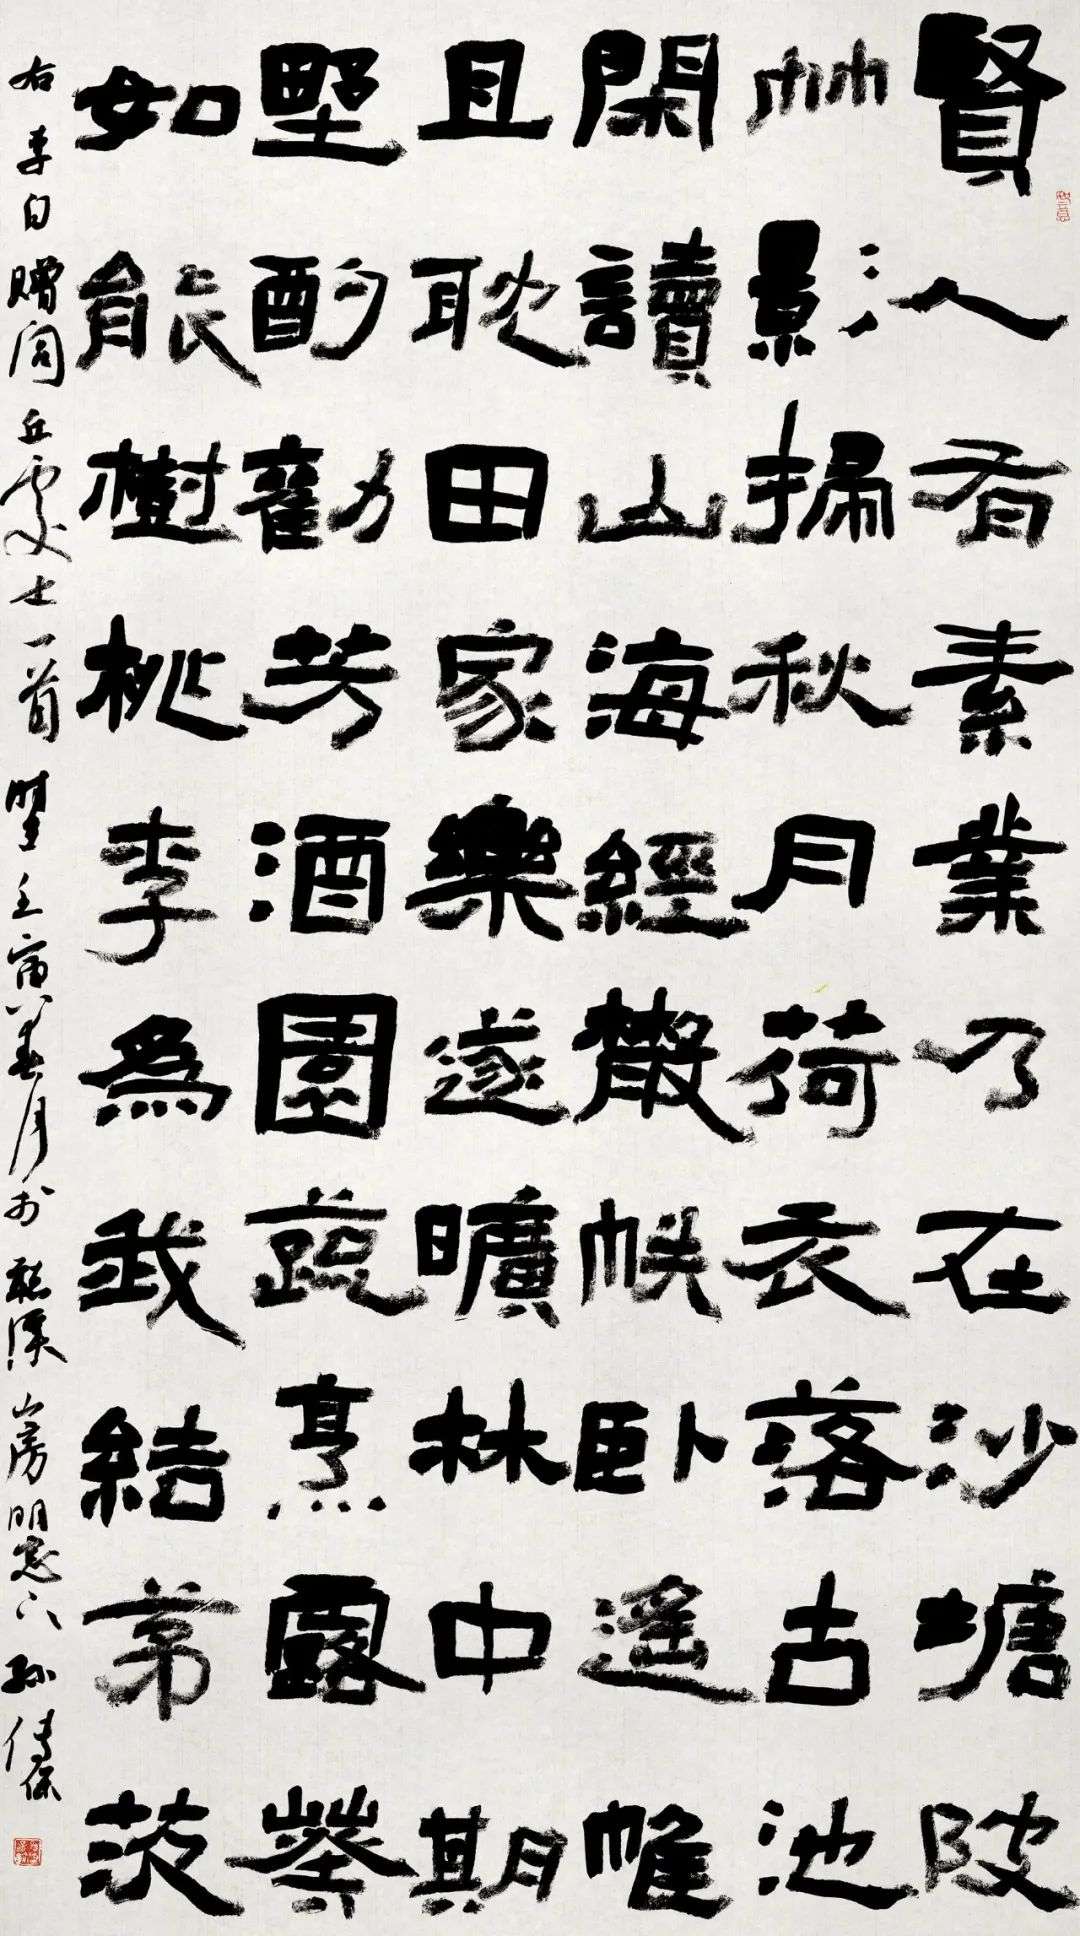 賢人有素業乃在沙塘陂
竹影掃秋月荷衣落古池
閑讀山海經散帙卧遥帷
且耽田家樂遂曠林中期
野酌勸芳酒園蔬烹露葵
如能樹桃李為我結茅茨
右李白贈閭丘處士一首 壬寅春月於 山房明窗下孫